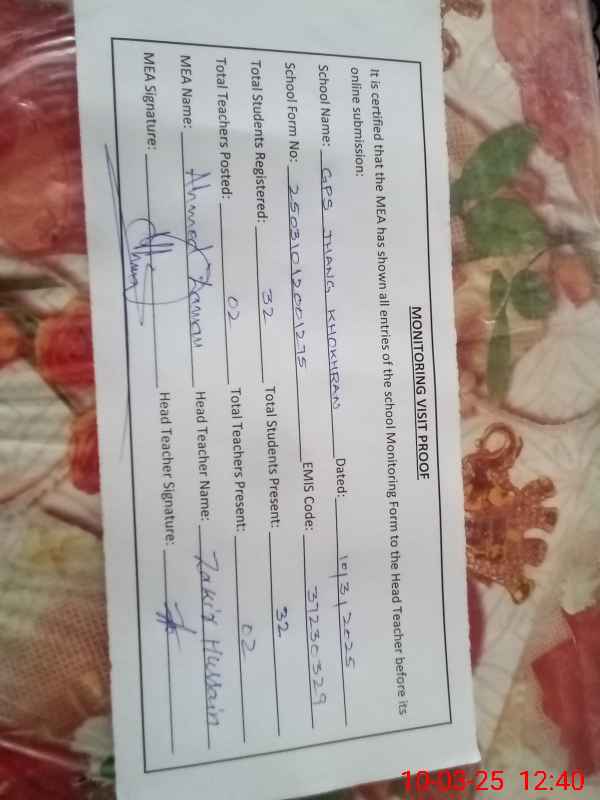 MONITORING VISIT PROOF
It is certified that the MEA has shown all entries of the school Monitoring Form to the Head Teacher before its
online submission:
School Name: GPS JHANG KHOKHRAN Dated: 10/3/2025
School Form No: 25031012001275 EMIS Code: 37230329
Total Students Registered: 32 Total Students Present: 32
Total Teachers Posted: 02 Total Teachers Present: 02
MEA Name: Ahmed Head Teacher Name: Zakir Hussain
MEA Signature: Head Teacher Signature:
10-03-25 12:40